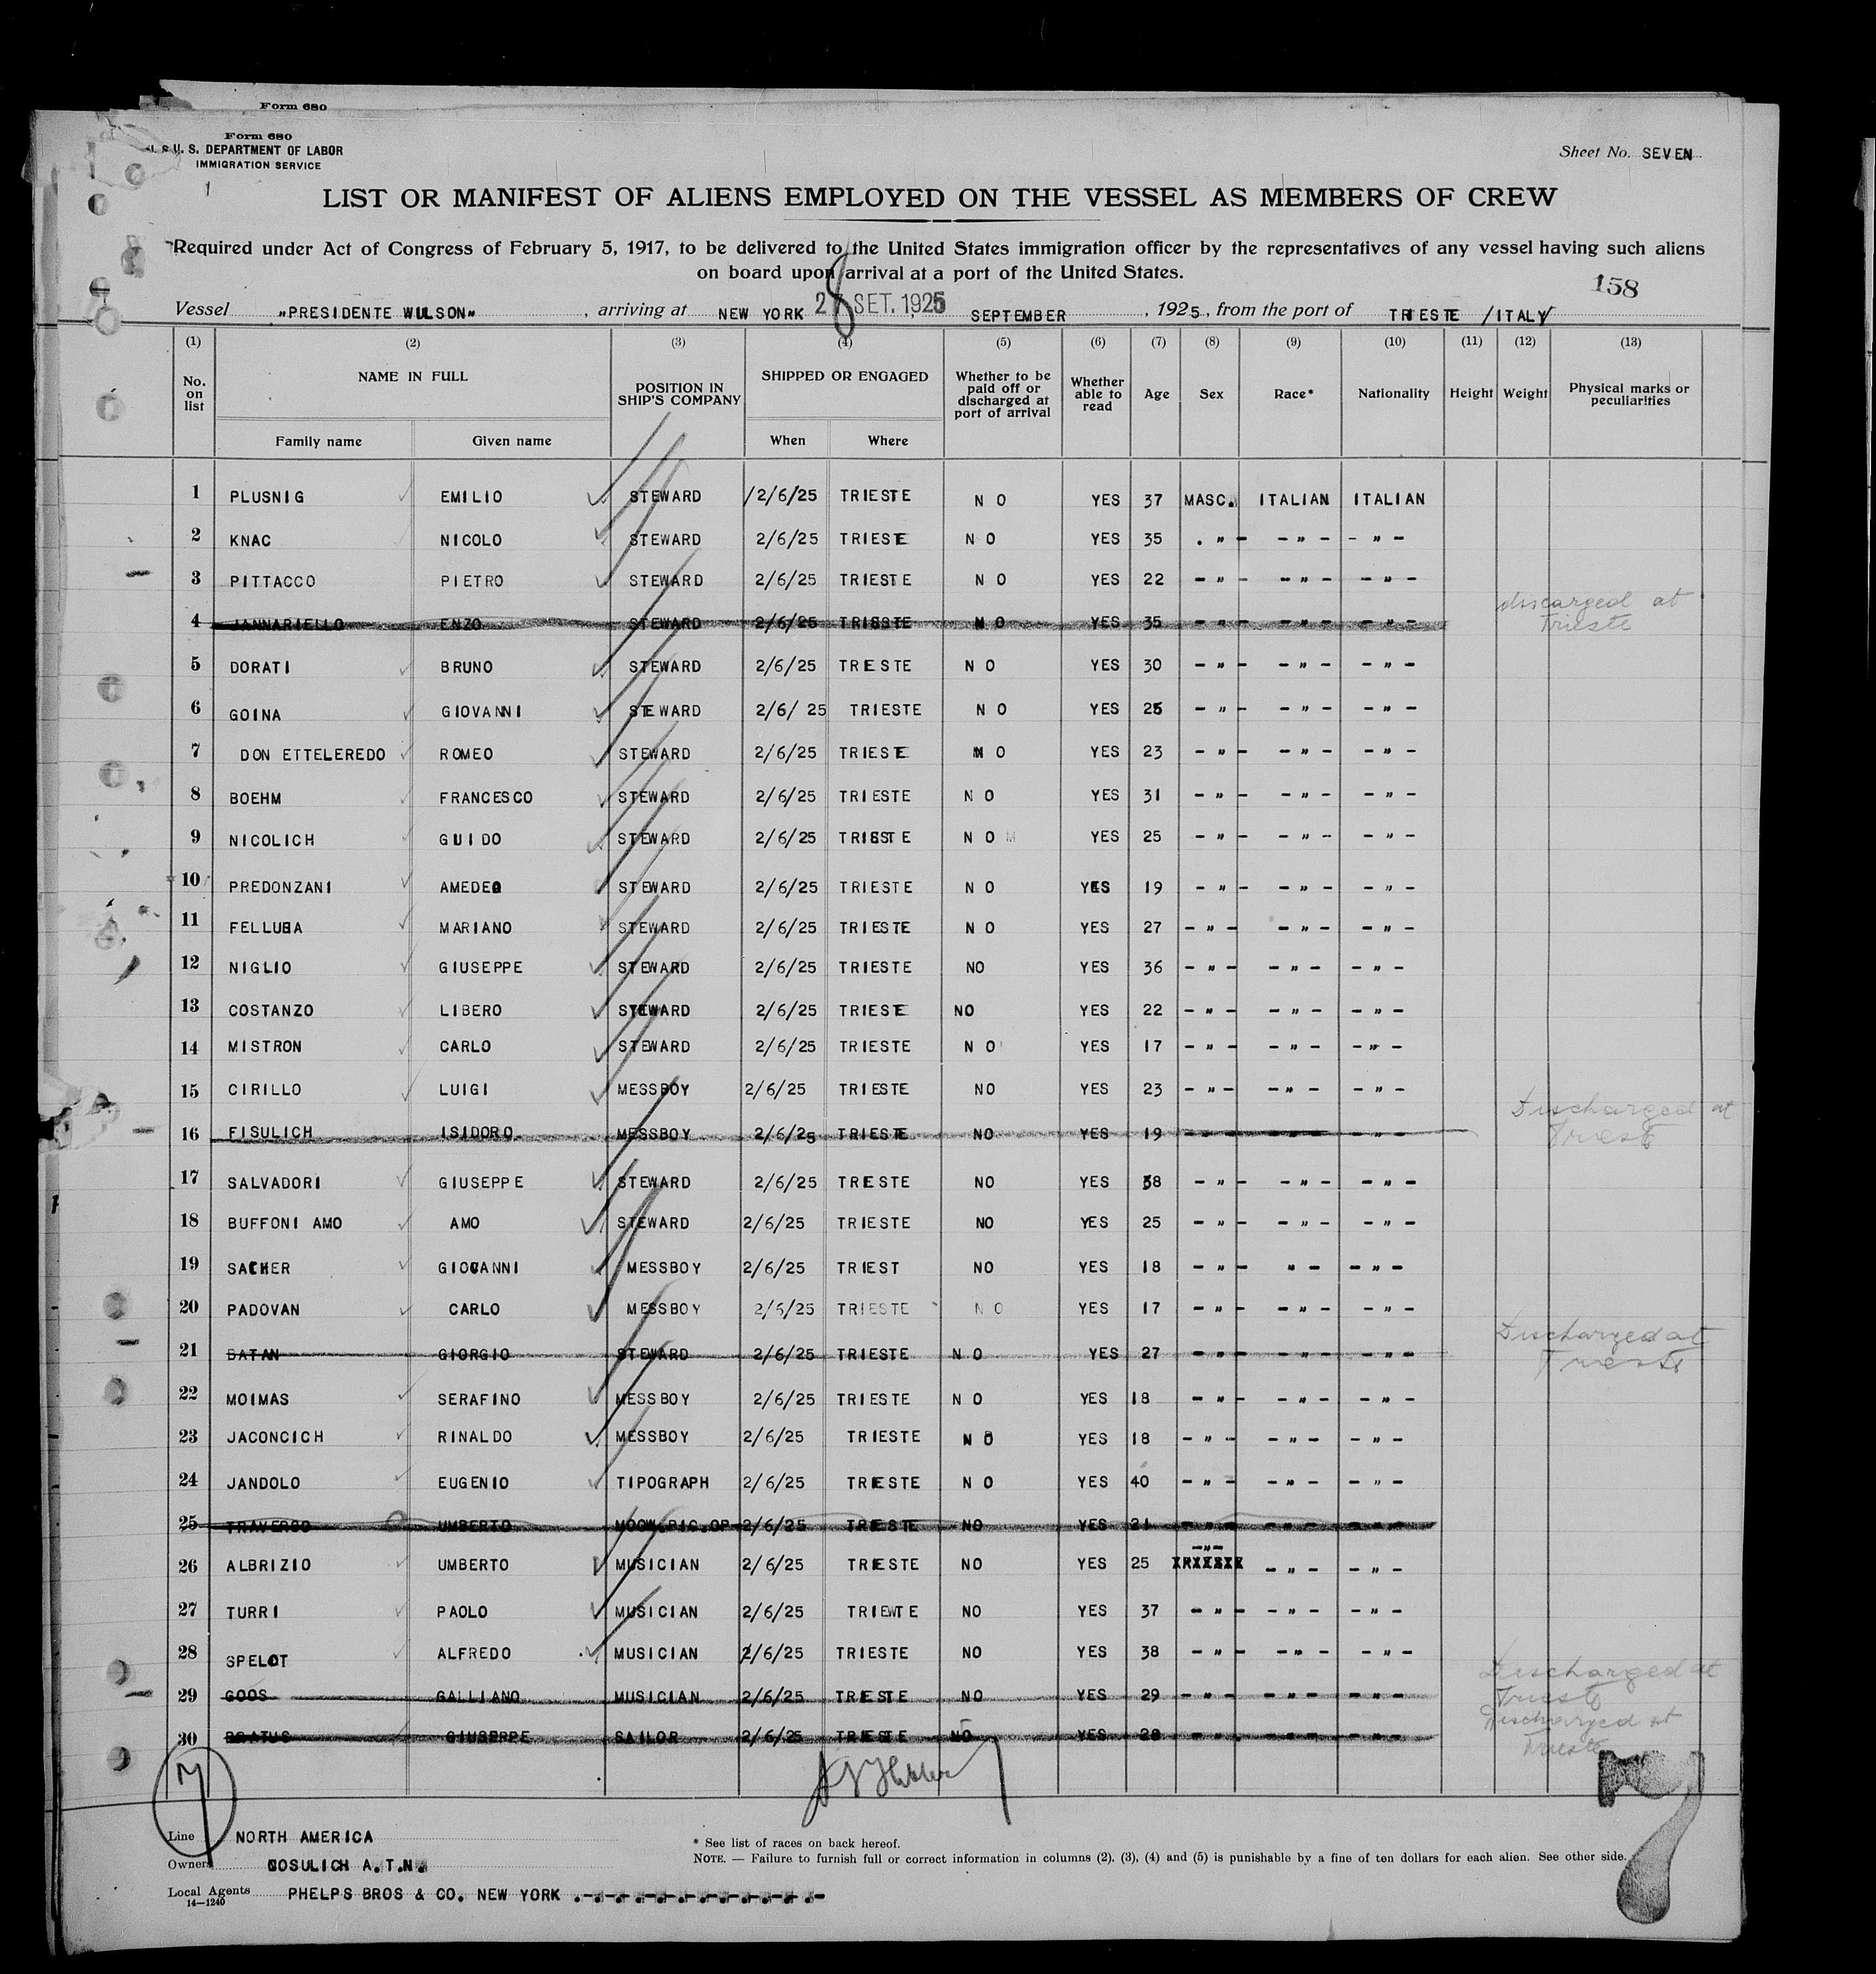 Form 680
Form 680
U. S. DEPARTMENT OF LABOR
IMMIGRATION SERVICE
Sheet No. SEVEN
LIST OR MANIFEST OF ALIENS EMPLOYED ON THE VESSEL AS MEMBERS OF CREW
Required under Act of Congress of February 5, 1917, to be delivered to the United States immigration officer by the representatives of any vessel having such aliens
on board upon arrival at a port of the United States.
158
Vessel "PRESIDENTE WILSON" , arriving at NEW YORK 28 SET. 1925 SEPTEMBER , 1925, from the port of TRIESTE /ITALY
(1) (2) (3) (4) (5) (6) (7) (8) (9) (10) (11) (12) (13)
No. on list NAME IN FULL POSITION IN SHIP'S COMPANY SHIPPED OR ENGAGED Whether to be paid off or discharged at port of arrival Whether able to read Age Sex Race* Nationality Height Weight Physical marks or peculiarities
Family name Given name When Where
1 PLUSNIG EMILIO STEWARD 2/6/25 TRIESTE N O YES 37 MASC. ITALIAN ITALIAN
2 KNAC NICOLO STEWARD 2/6/25 TRIESTE N O YES 35 . " - - " - - " -
3 PITTACCO PIETRO STEWARD 2/6/25 TRIESTE N O YES 22 - " - - " - - " -
4 JANNARIELLO ENZO STEWARD 2/6/25 TRISSTE N O YES 35 - " - - " - - " - discarged at Trieste
5 DORATI BRUNO STEWARD 2/6/25 TRIESTE N O YES 30 - " - - " - - " -
6 GOINA GIOVANNI STEWARD 2/6/ 25 TRIESTE N O YES 25 - " - - " - - " -
7 DON ETTELEREDO ROMEO STEWARD 2/6/25 TRIESTE N O YES 23 - " - - " - - " -
8 BOEHM FRANCESCO STEWARD 2/6/25 TRIESTE N O YES 31 - " - - " - - " -
9 NICOLICH GUIDO STEWARD 2/6/25 TRIESTE N O YES 25 - " - - " - - " -
10 PREDONZANI AMEDEO STEWARD 2/6/25 TRIESTE N O YES 19 - " - - " - - " -
11 FELLUBA MARIANO STEWARD 2/6/25 TRIESTE N O YES 27 - " - - " - - " -
12 NIGLIO GIUSEPPE STEWARD 2/6/25 TRIESTE NO YES 36 - " - - " - - " -
13 COSTANZO LIBERO STEWARD 2/6/25 TRIESTE NO YES 22 - " - - " - - " -
14 MISTRON CARLO STEWARD 2/6/25 TRIESTE N O YES 17 - " - - " - - " -
15 CIRILLO LUIGI MESSBOY 2/6/25 TRIESTE NO YES 23 - " - - " - - " -
16 FISULICH ISIDORO MESSBOY 2/6/25 TRIESTE NO YES 19 - " - - " - - " - Discharged at Trieste
17 SALVADORI GIUSEPPE STEWARD 2/6/25 TRIESTE NO YES 38 - " - - " - - " -
18 BUFFONI AMO AMO STEWARD 2/6/25 TRIESTE NO YES 25 - " - - " - - " -
19 SACHER GIOVANNI MESSBOY 2/6/25 TRIEST NO YES 18 - " - " - - " -
20 PADOVAN CARLO MESSBOY 2/6/25 TRIESTE N O YES 17 - " - - " - - " -
21 BATAN GIORGIO STEWARD 2/6/25 TRIESTE N O YES 27 - " - - " - - " - Discharged at Trieste
22 MOIMAS SERAFINO MESSBOY 2/6/25 TRIESTE N O YES 18 - " - - " - - " -
23 JACONCICH RINALDO MESSBOY 2/6/25 TRIESTE N O YES 18 - " - - " - - " -
24 JANDOLO EUGENIO TIPOGRAPH 2/6/25 TRIESTE N O YES 40 - " - - " - - " -
25 TRAVERSO UMBERTO MOOW.PIC.OP 2/6/25 TRIESTE NO YES 21 - " - - " - - " -
26 ALBRIZIO UMBERTO MUSICIAN 2/6/25 TRIESTE NO YES 25 -"- - " - - " -
27 TURRI PAOLO MUSICIAN 2/6/25 TRIEWTE NO YES 37 - " - - " - - " -
28 SPELOT ALFREDO MUSICIAN 2/6/25 TRIESTE NO YES 38 - " - - " - - " -
29 GOOS GALLIANO MUSICIAN 2/6/25 TRIESTE NO YES 29 - " - - " - - " - Discharged at Trieste
30 BRATUS GIUSEPPE SAILOR 2/6/25 TRIESTE NO YES 28 - " - - " - - " - Discharged at Trieste
Line NORTH AMERICA
* See list of races on back hereof.
Owners COSULICH A.T.N.
NOTE. — Failure to furnish full or correct information in columns (2). (3), (4) and (5) is punishable by a fine of ten dollars for each alien. See other side.
Local Agents PHELPS BROS & CO. NEW YORK
14—1240